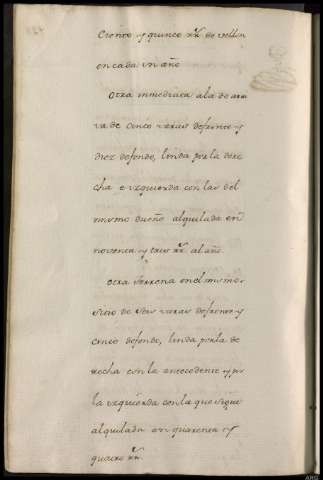 Ciento y quince rs. de vellon
en cada un año
Otra inmediata a la de arri
va de cinco varas de frente y
diez de fondo, linda por la dere
cha e izquierda con las del
mismo dueño alquilada en
noventa y tres rs. al año
Otra terrena en el mismo
sitio de seis varas de frente y
cinco de fondo, linda por la de
recha con la antecedente y por
la izquierda con la que sigue
alquilada en quarenta y
quatro rs.